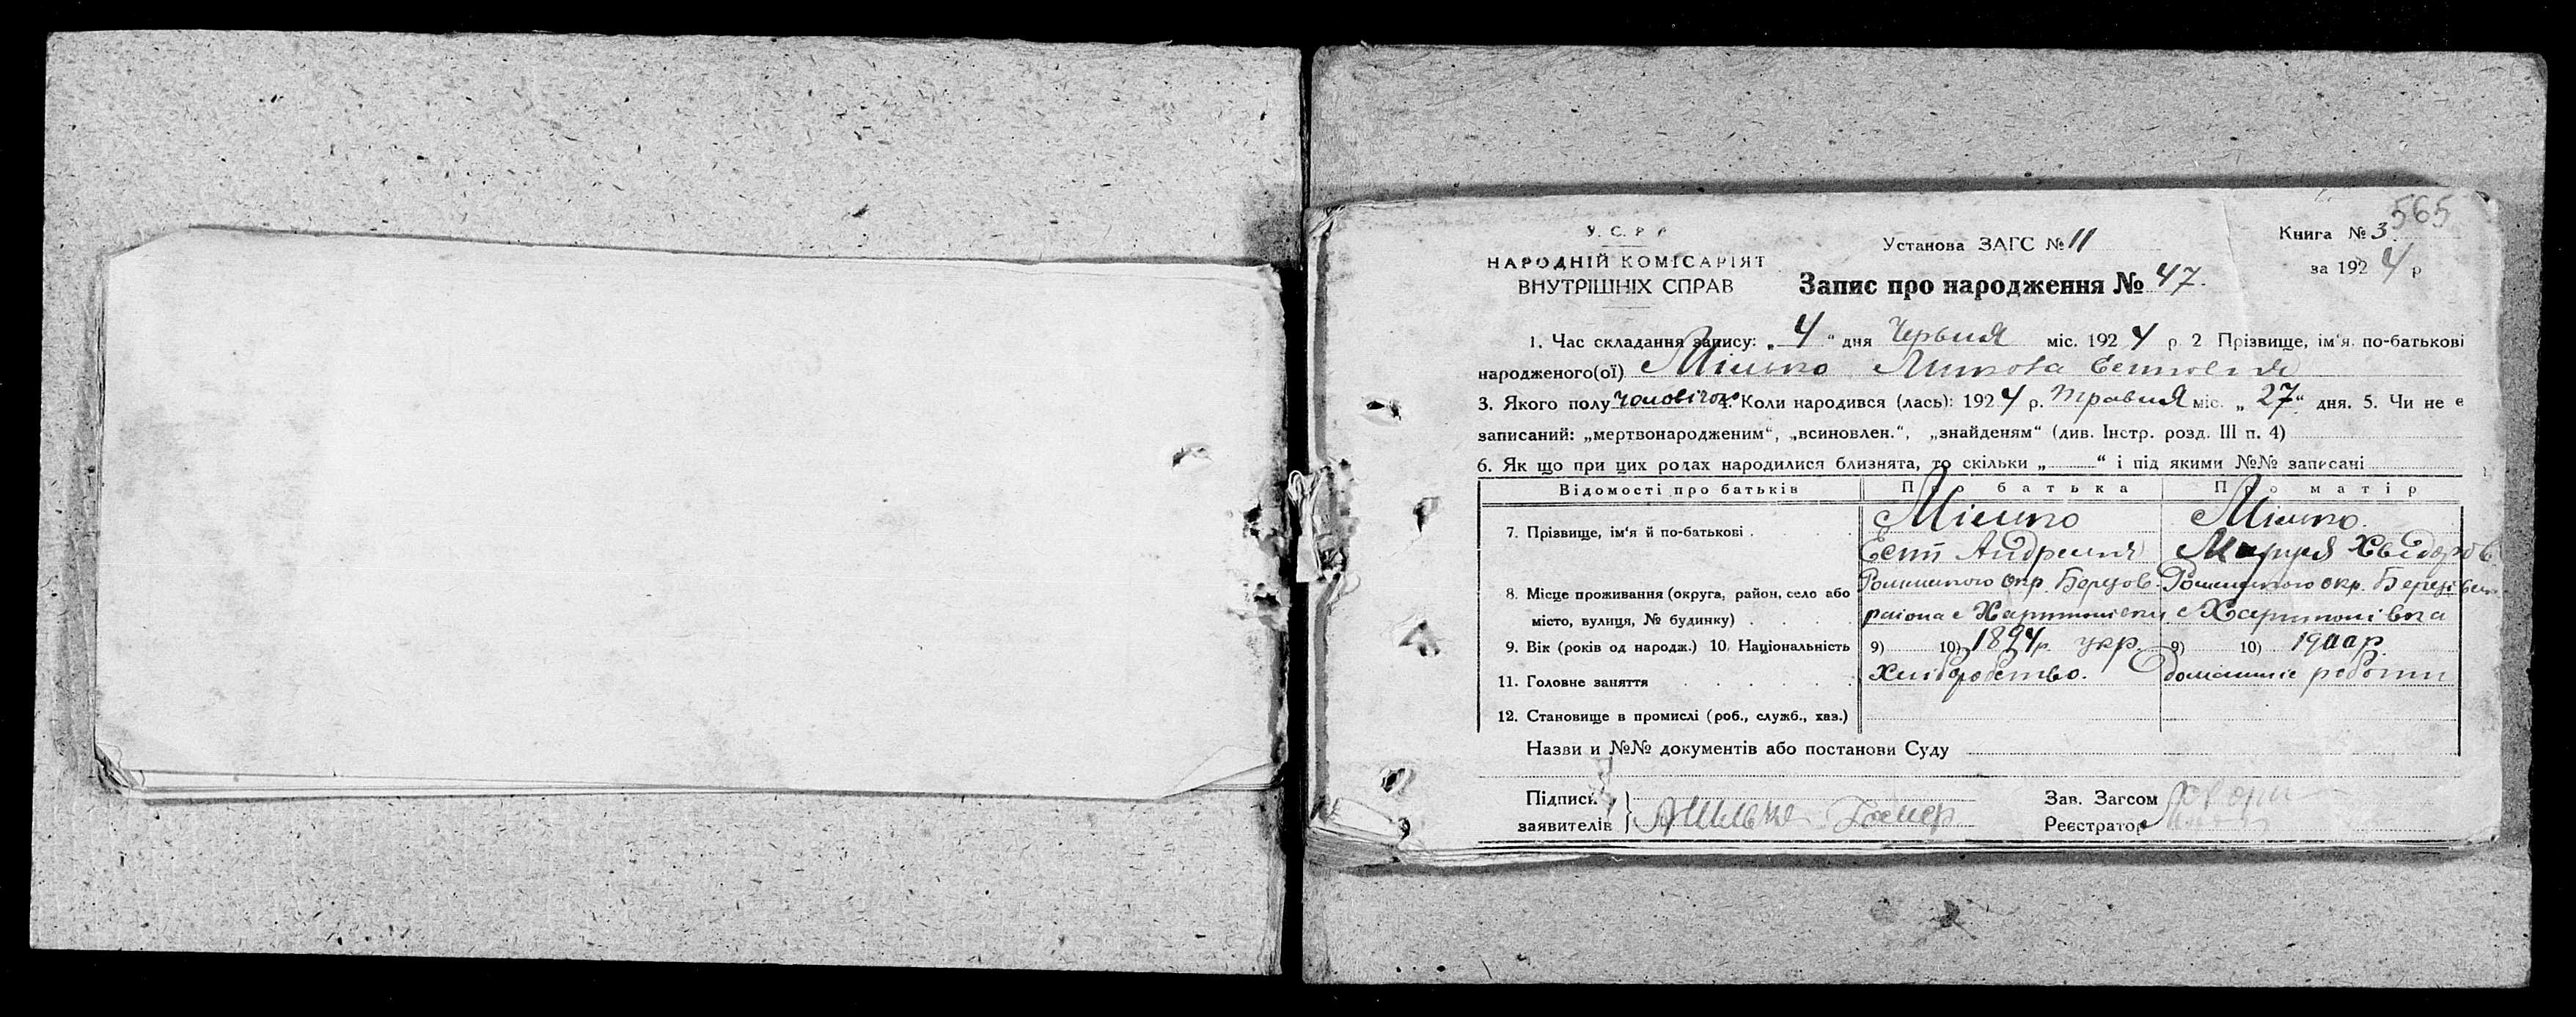 565
У. С. Р. Р.
НАРОДНІЙ КОМІСАРІЯТ
ВНУТРІШНІХ СПРАВ
Установа ЗАГС № 11
Книга № 3
за 1924 р
Запис про народження № 47.
1. Час складання запису: „4“ дня Червня міс. 1924 р. 2 Прізвище, ім'я, по-батькові
народженого(ої)
3. Якого полу чоловічого 4. Коли народився (лась): 1924 р. травня міс. „27“ дня. 5. Чи не є
записаний: „мертвонародженим“, „всиновлен.“, „знайденям“ (див. Інстр. розд. III п. 4)
6. Як що при цих родах народилися близнята, то скільки „ “ і під якими №№ записані
Відомості про батьків Про батька Про матір
7. Прізвище, ім'я й по-батькові
8. Місце проживання (округа, район, село або
місто, вулиця, № будинку)
Роменського окр. Березов. Роменського окр. Березівськ.
района с Хартонівки с Хартонівка
9. Вік (років од народж.) 10. Національність 9) 10) 1894р. укр. 9) 10) 1900р.
11. Головне заняття Хліборобство. домашніє роботи
12. Становище в промислі (роб., служб., хаз.)
Назви и №№ документів або постанови Суду
Підписи
заявителів
Зав. Загсом
Реєстратор